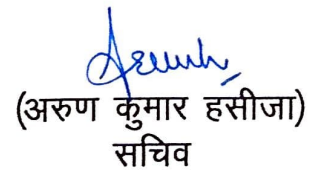 (अरुण कुमार हसीजा)
सचिव